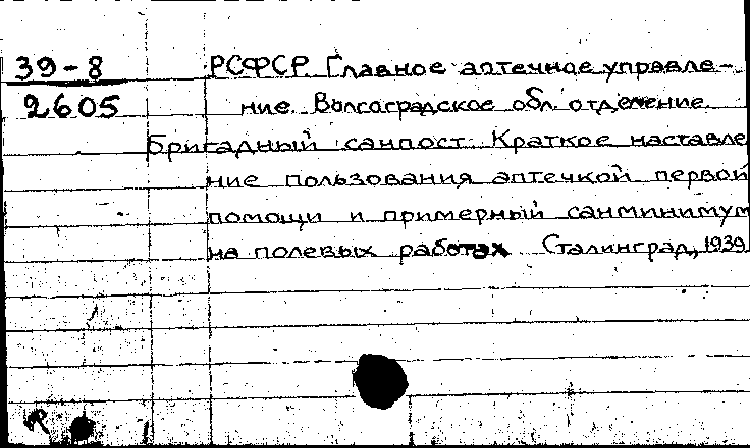 39-8
2605
РСФСР Главное аптечное управле-
ние. Волгоградское обл. отделение.
Бригадный санпост. Краткое наставле
ние пользования аптечкой первой
помощи и примерный санминимум
на полевых работах Сталинград, 1939